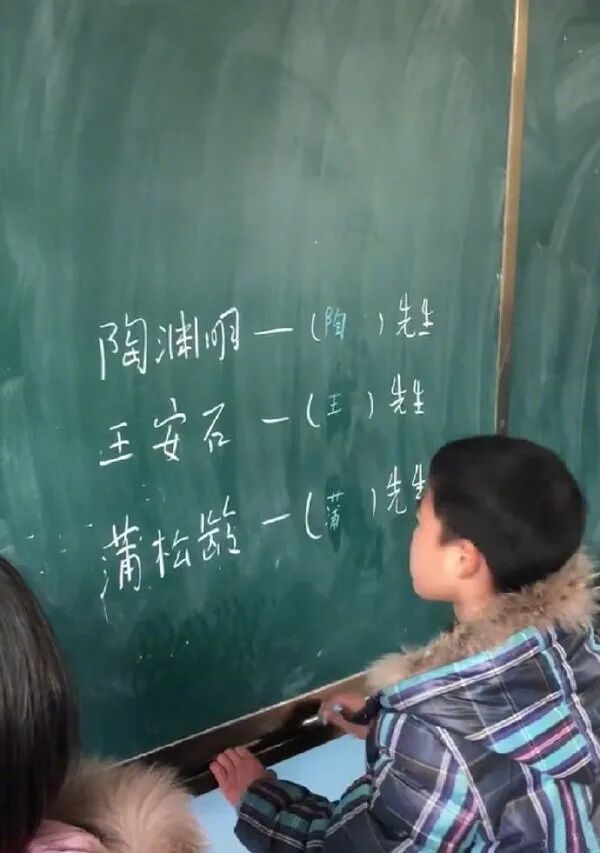 陶渊明—(陶)先生
王安石—(王)先生
蒲松龄—(蒲)先生